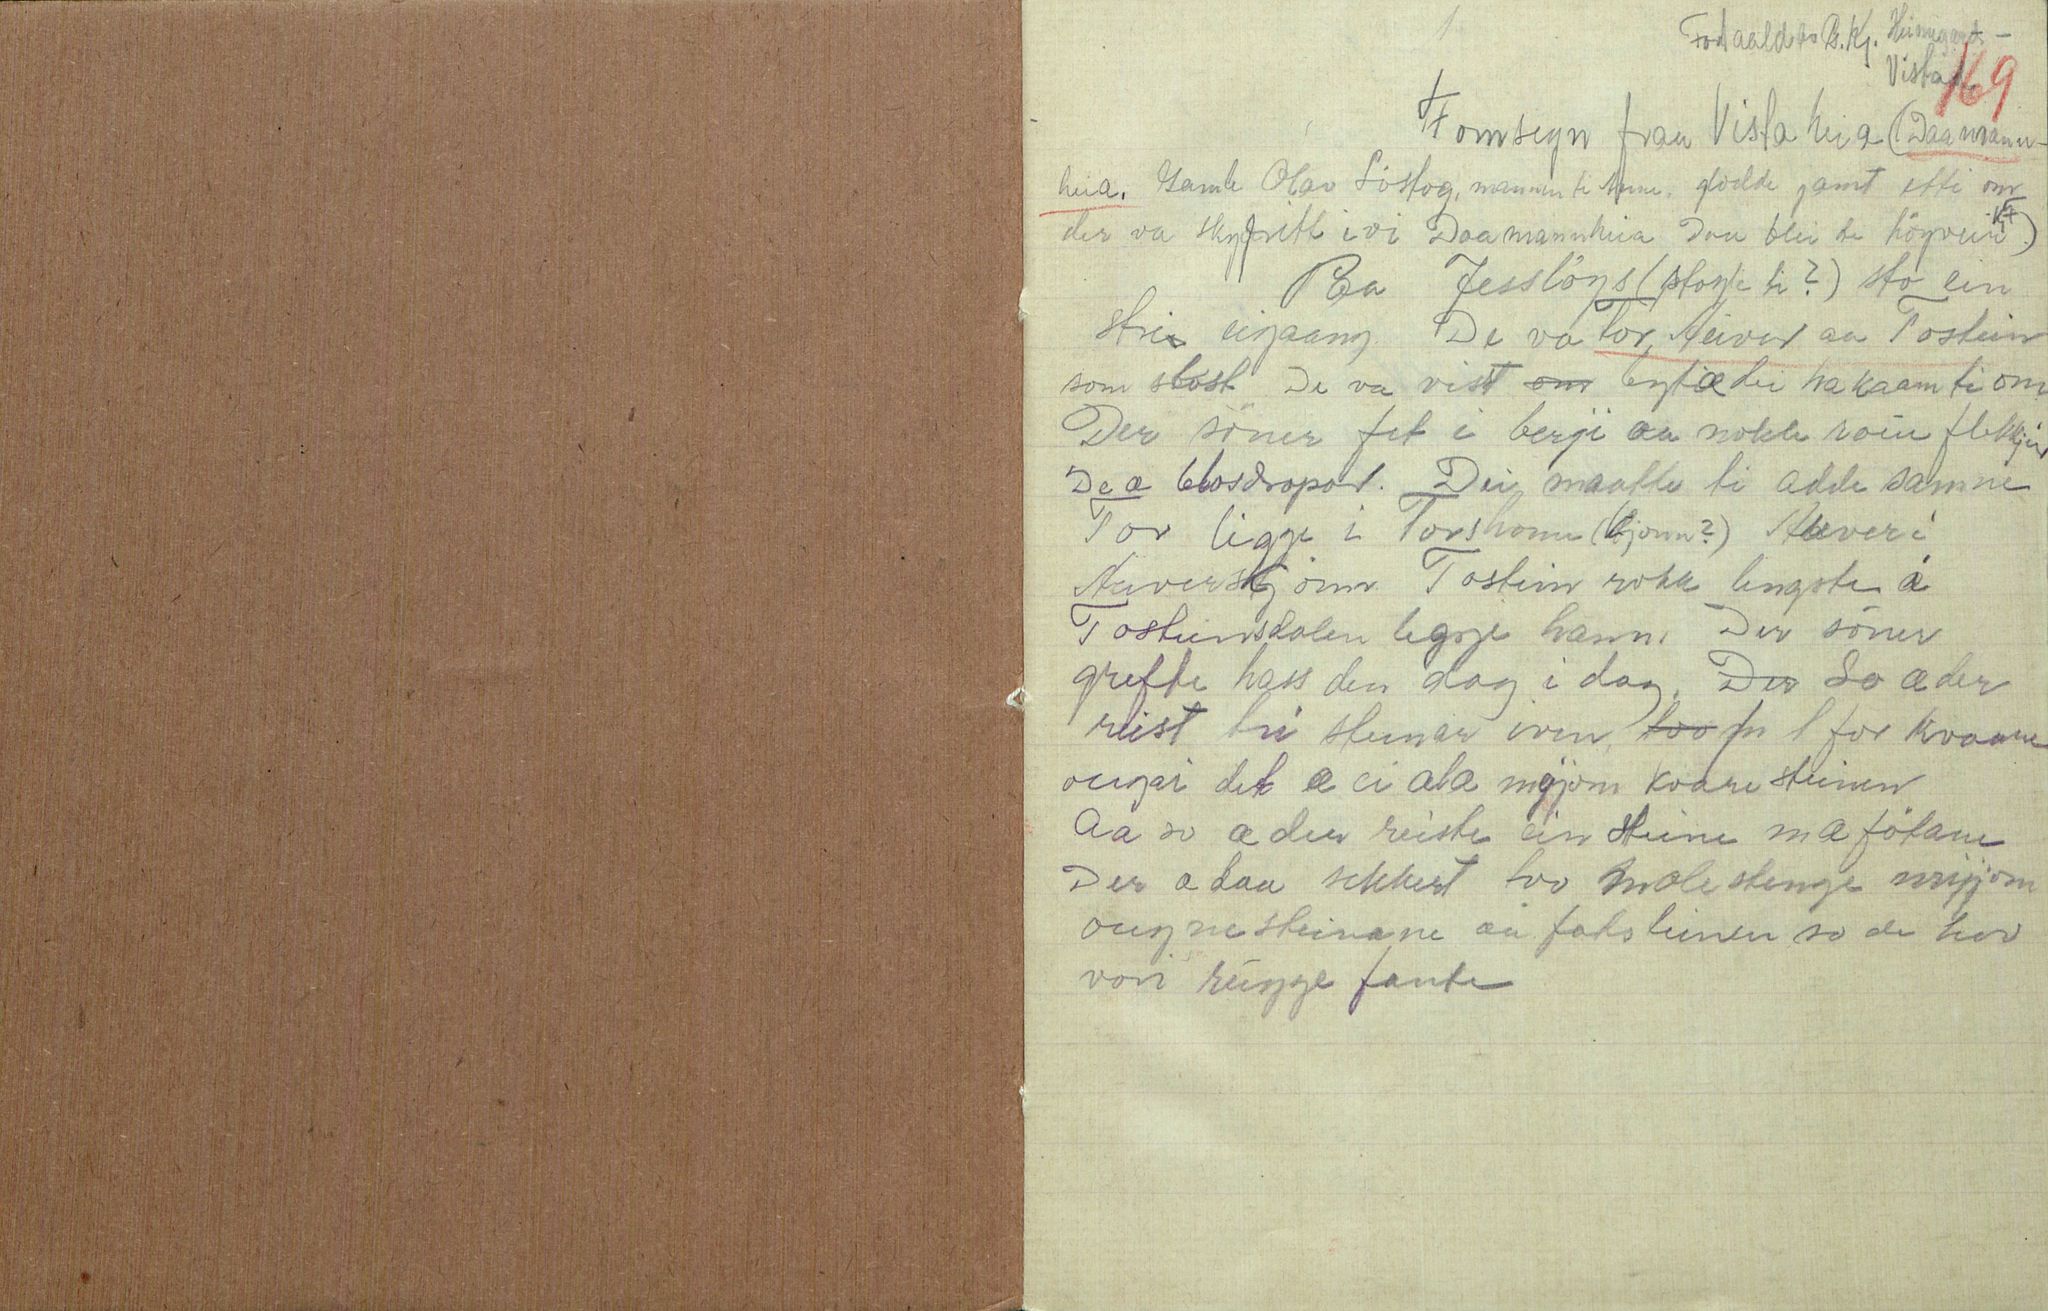 1
Fortaald to B. Kj. Heimigards-
Vistad
169
Fornsegn fraa Vistaheia (Daamann-
heia. Gamle Olav Listog, mannen ti Anne, glódde gamt etti om
der va skyfritt ivi Daamannheia Daa blei de högveirt.)
Paa Jesslögs (stogje ti?) sto ein
stri eigaang. De va Tor, Aeivar aa Tostein
som slost. De va vist om bytæ dei ha kaam ti om
Der söner fet i bergji aa nokle roue flekkjir
De æ blosdropar. Dei maatte ti adde samne
Tor ligge i Torshome (tjonn?) Aæver i
Aaverstjönn. Tostein rokk lengste á
Tosteinsdalen leggje hann. Der söner
grefte hass den dag i dag. Der So æ der
reist tri steinar iven, too fr l for kvaane
ougai det æ ei ala mijjom kvare steinen
Aa so æ der reiste ein steine mæ fötane
Der æ daa sekkert too molestenge mijjom
ougnesteinane aa fotsteinen so de hev
vori reigge fante